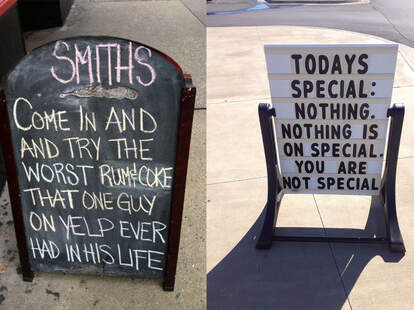 SMITHS
COME IN AND
AND TRY THE
WORST RUM&COKE
THAT ONE GUY
ON YELP EVER
HAD IN HIS LIFE
TODAYS
SPECIAL:
NOTHING.
NOTHING IS
ON SPECIAL.
YOU ARE
NOT SPECIAL